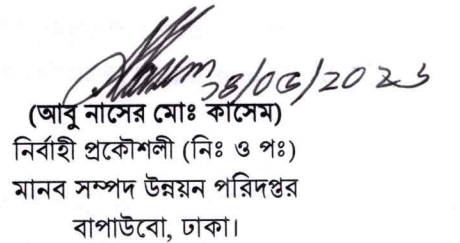 (আবু নাসের মোঃ কাসেম)
নির্বাহী প্রকৌশলী (নিঃ ও পঃ)
মানব সম্পদ উন্নয়ন পরিদপ্তর
বাপাউবো, ঢাকা।